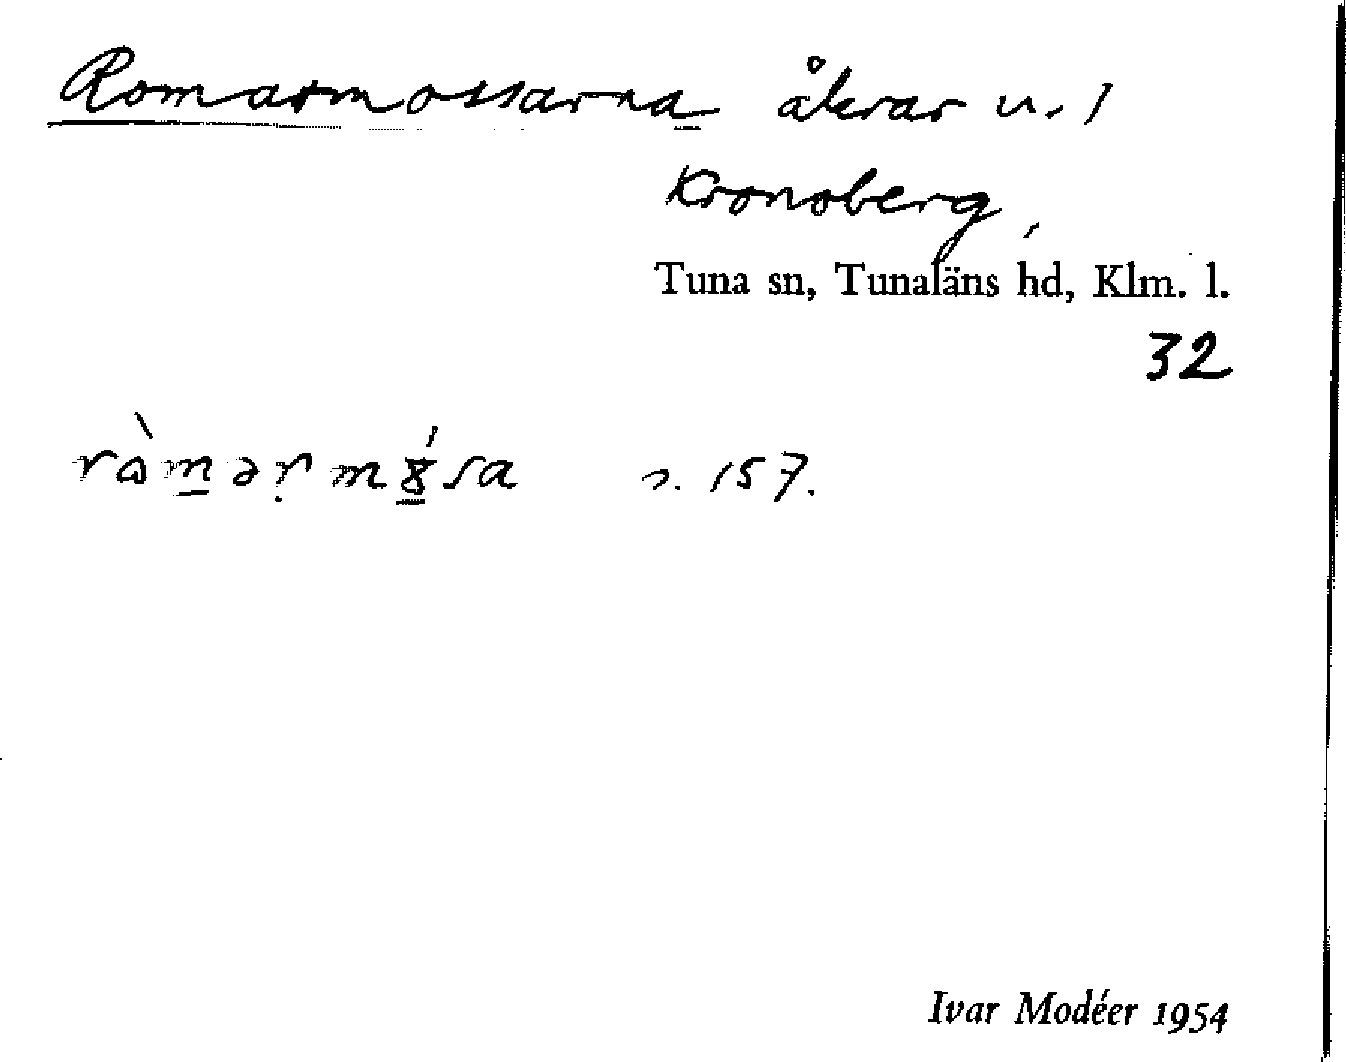 Romarmossarna åkrar u. 1
Kronoberg,
Tuna sn, Tunaläns hd, Klm. l.
32
s. 157.
Ivar Modéer 1954